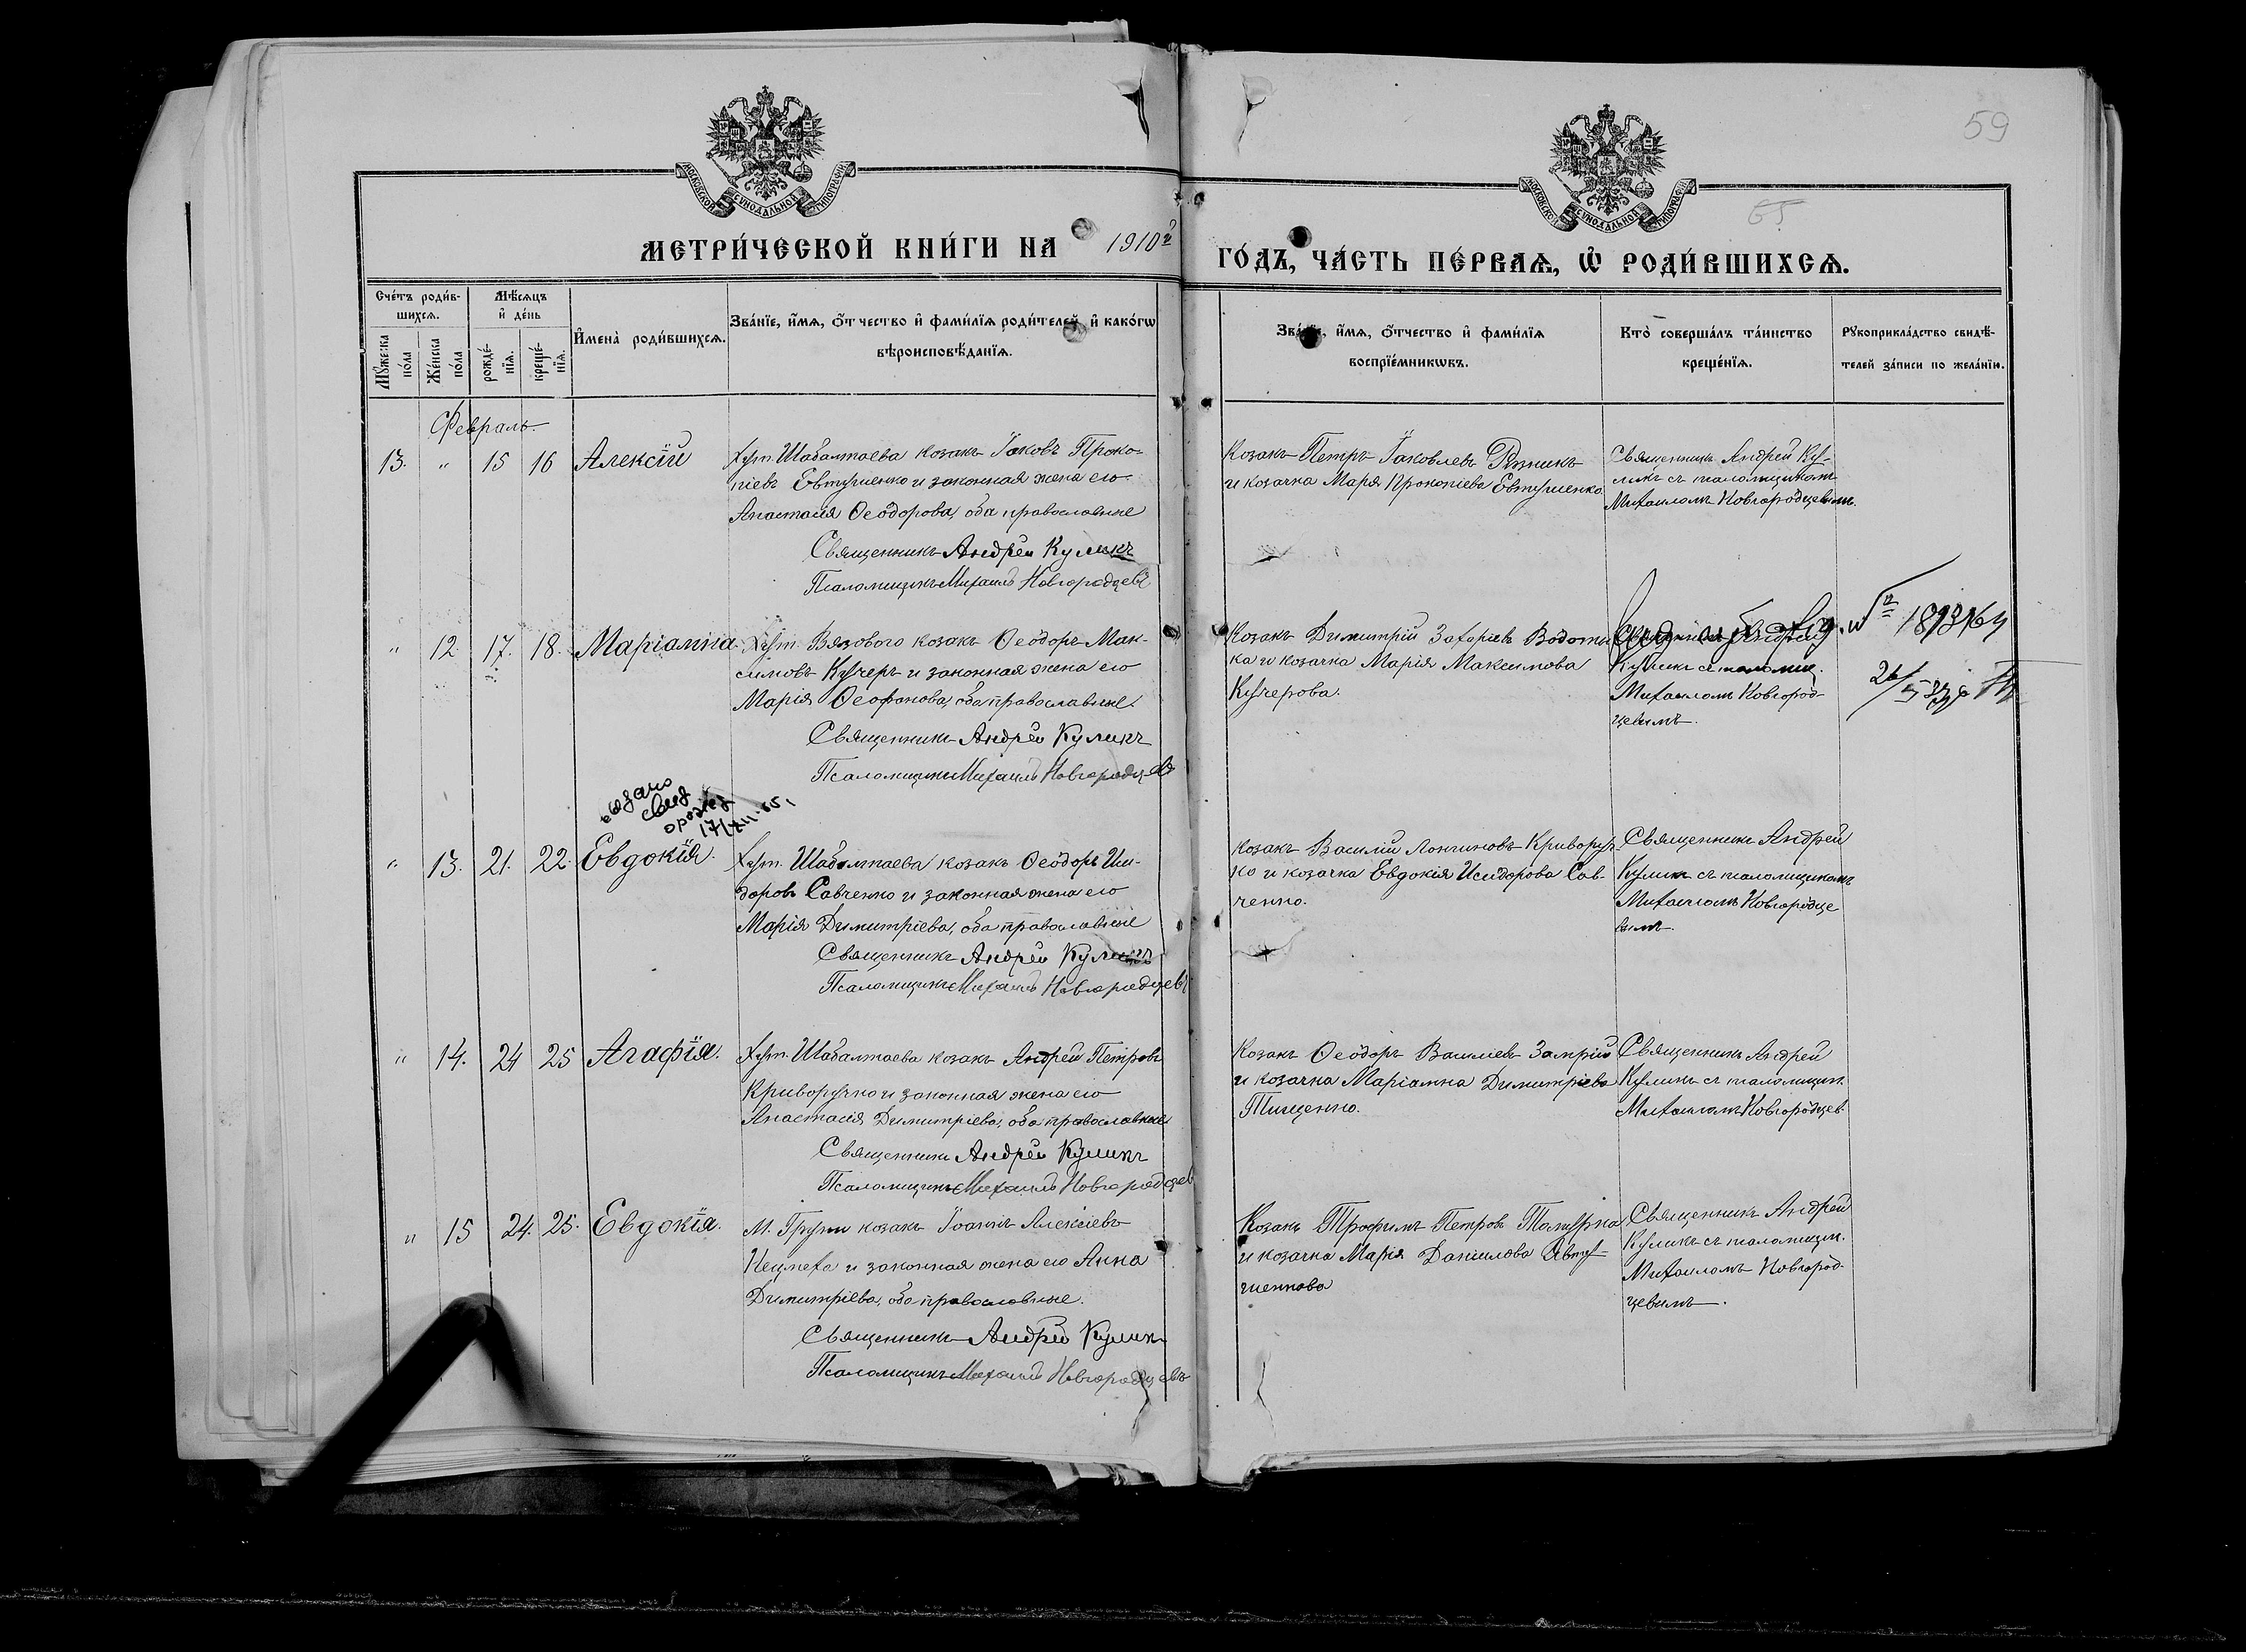 59
65
МОСКОВСКОЙ СУНОДАЛЬНОЙ ТИПОГРАФІИ
МОСКОВСКОЙ СУНОДАЛЬНОЙ ТИПОГРАФІИ
МЕТРИ́ЧЕСКОЙ КНИ́ГИ НА 1910й ГО́ДЪ, ЧА́СТЬ ПЕ́РВАѦ, Ѽ РОДИ́ВШИХСѦ.
Сче́тъ роди́в-
шихсѧ.
Мꙋ́жеска
по́ла
Же́нска
по́ла
Мѣ́сѧцъ
и҆ де́нь
рожде́-
нїѧ.
креще́-
нїѧ.
И҆мена̀ роди́вшихсѧ.
Зва́нїе, и҆́мѧ, ѻ҆́тчество и҆ фами́лїѧ роди́телей, и҆ како́гѡ
вѣроисповѣ́данїѧ.
Зва́нїе, и҆́мѧ, ѻ҆́тчество и҆ фами́лїѧ
воспрїе́мникѡвъ.
Кто̀ соверша́лъ та́инство
креще́нїѧ.
Рꙋкоприкла́дство свидѣ́-
телей за́писи по жела́нїю.
Февраль.
13. " 15 16 Алексій
Хут. Шабалтаева козакъ Іаковъ Проко-
піевъ Евтушенко и законная жена его
Анастасія Ѳеодорова, оба православные
Священникъ Андрей Куликъ
Псаломщикъ Михаилъ Новгородцевъ
Козакъ Петръ Іаковлевъ Рѣзникъ
и козачка Марія Прокопіева Евтушенко
Священникъ Андрей Ку-
ликъ съ псаломщикомъ
Михаиломъ Новгородцевымъ.
" 12 17. 18. Маріамна.
Хут. Вязового козакъ Ѳеодоръ Мак-
симовъ Кучеръ и законная жена его
Марія Ѳеофанова, оба православные.
Священникъ Андрей Куликъ
Псаломщикъ Михаилъ Новгородцевъ
Козакъ Димитрій Захаріевъ
ка и козачка Марія Максимова
Кучерова.
Священникъ Андрей
Куликъ съ псаломщ.
Михаиломъ Новгород-
цевымъ.
№
26/
выдано
свид
о рожд
17/XII.65,
" 13. 21. 22. Евдокія.
Хут. Шабалтаева козакъ Ѳеодоръ Иси-
доровъ Савченко и законная жена его
Марія Димитріева, оба православные
Священникъ Андрей Куликъ
Псаломщикъ Михаилъ Новгородцевъ
Козакъ Василій Лонгиновъ Криворуч-
ко и козачка Евдокія Исидорова Сав-
ченко.
Священникъ Андрей
Куликъ съ псаломщикомъ
Михаиломъ Новгородце
вымъ.
" 14. 24 25 Агафія.
Хут. Шабалтаева козакъ Андрей Петровъ
Криворучко и законная жена его
Анастасія Димитріева, оба православные
Священникъ Андрей Куликъ
Псаломщикъ Михаилъ Новгородцев
Козакъ Ѳеодоръ Василіевъ Замрій
и козачка Маріамна Димитріева
Тищенко.
Священникъ Андрей
Куликъ съ псаломщик.
Михаиломъ Новгородцев.
" 15 24. 25. Евдокія.
М. Груни козакъ Іоаннъ Алексіевъ
и законная жена его Анна
Димитріева, оба православные.
Священникъ Андрей Куликъ
Псаломщикъ Михаилъ Новгородцевъ
Козакъ Трофимъ Петровъ
и козачка Марія Даніилова Явту-
шенкова
Священникъ Андрей
Куликъ съ псаломщик.
Михаиломъ Новгород-
цевымъ.